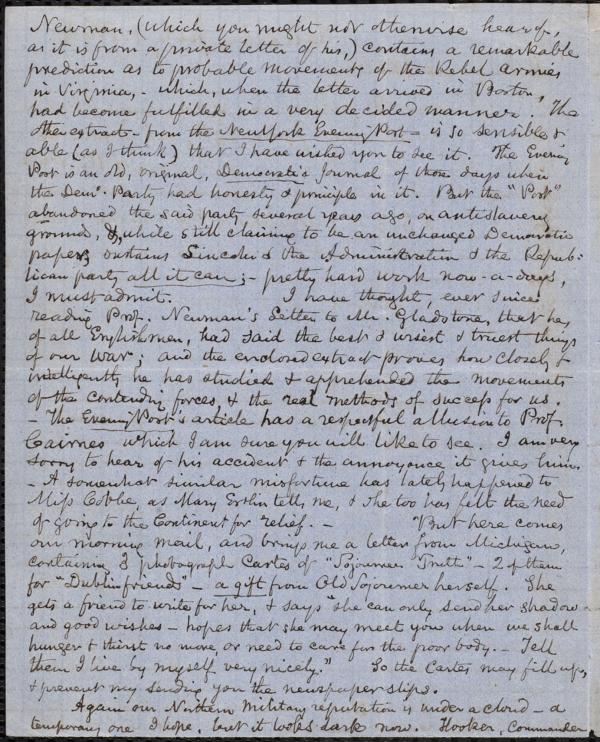 Newman, (which you might not otherwise hear of,
as it is from a private letter of his,) contains a remarkable
prediction as to probable movements of the Rebel armies
in Virginia, - which, when the letter arrived in Boston,
had become fulfilled in a very decided manner. The
other extract - from the New York Evening Post - is so sensible &
able (as I think) that I have wished you to see it. The Evening
Post is an old, original, Democratic Journal of those days when
the Dem. Party had honesty & principle in it. But the "Post"
abandoned the said party several years ago, on antislavery
ground, &, while still claiming to be an unchanged Democratic
paper, sustains Lincoln & the Administration & the Repub-
lican party all it can; - pretty hard work now-a-days,
I must admit. I have thought, ever since
reading Prof. Newman's Letter to Mr. Gladstone, that he,
of all Englishmen, had said the best & wisest & truest things
of our War; and the enclosed extract proves how closely &
intelligently he has studied & apprehended the movements
of the contending forces, & the real methods of success for us.
- The Evening Post's article has a respectful allusion to Prof.
Cairnes which I am sure you will like to see. I am very
sorry to hear of his accident & the annoyance it gives him.
- A somewhat similar misfortune has lately happened to
Miss Cobbe, as Mary Estlin tells me, & she too has felt the need
of going to the Continent for relief. - But here comes
our morning mail, and brings me a letter from Michigan,
containing 3 photograph Cartes of "Sojourner Truth" - 2 of them
for "Dublin friends" - a gift from Old Sojourner herself. She
gets a friend to write for her, & says "she can only send her shadow -
and good wishes - hopes that she may meet you when we shall
hunger & thirst no more, or need to care for the poor body. - Tell
them I live by myself very nicely." So the Cartes may fill up,
& prevent my sending you the newspaper slips.
Again our Northern Military reputation is under a cloud - a
temporary one I hope, but it looks dark now. Hooker, Commander